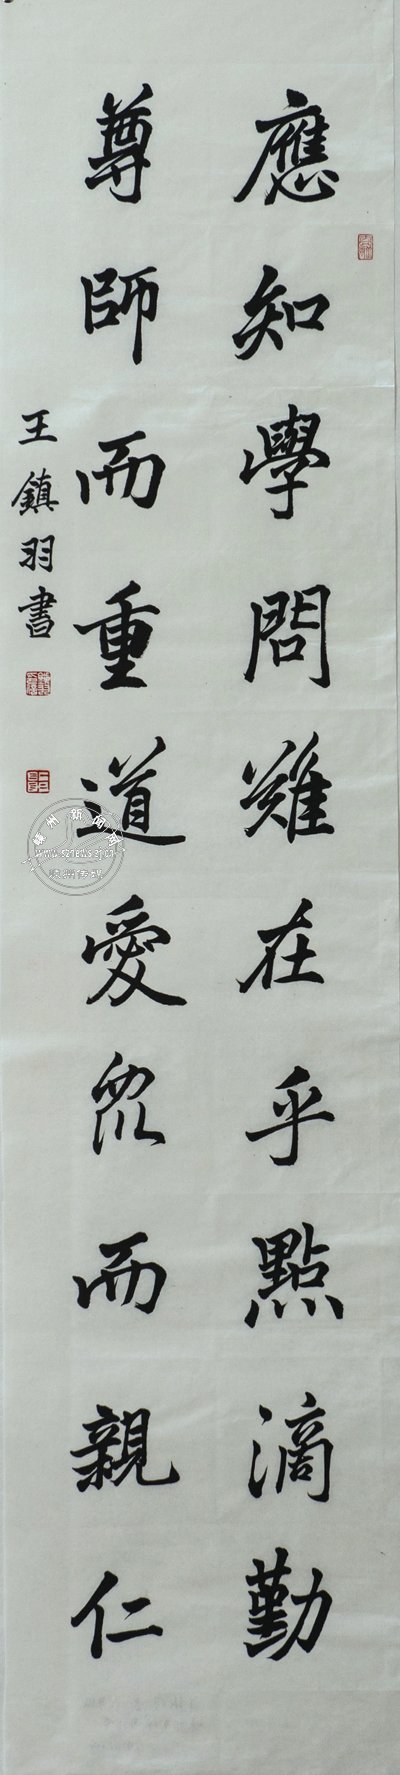 應知學問難在乎點滴勤
尊師而重道愛眾而親仁
王鎮羽書
www.sznews.zj.cn